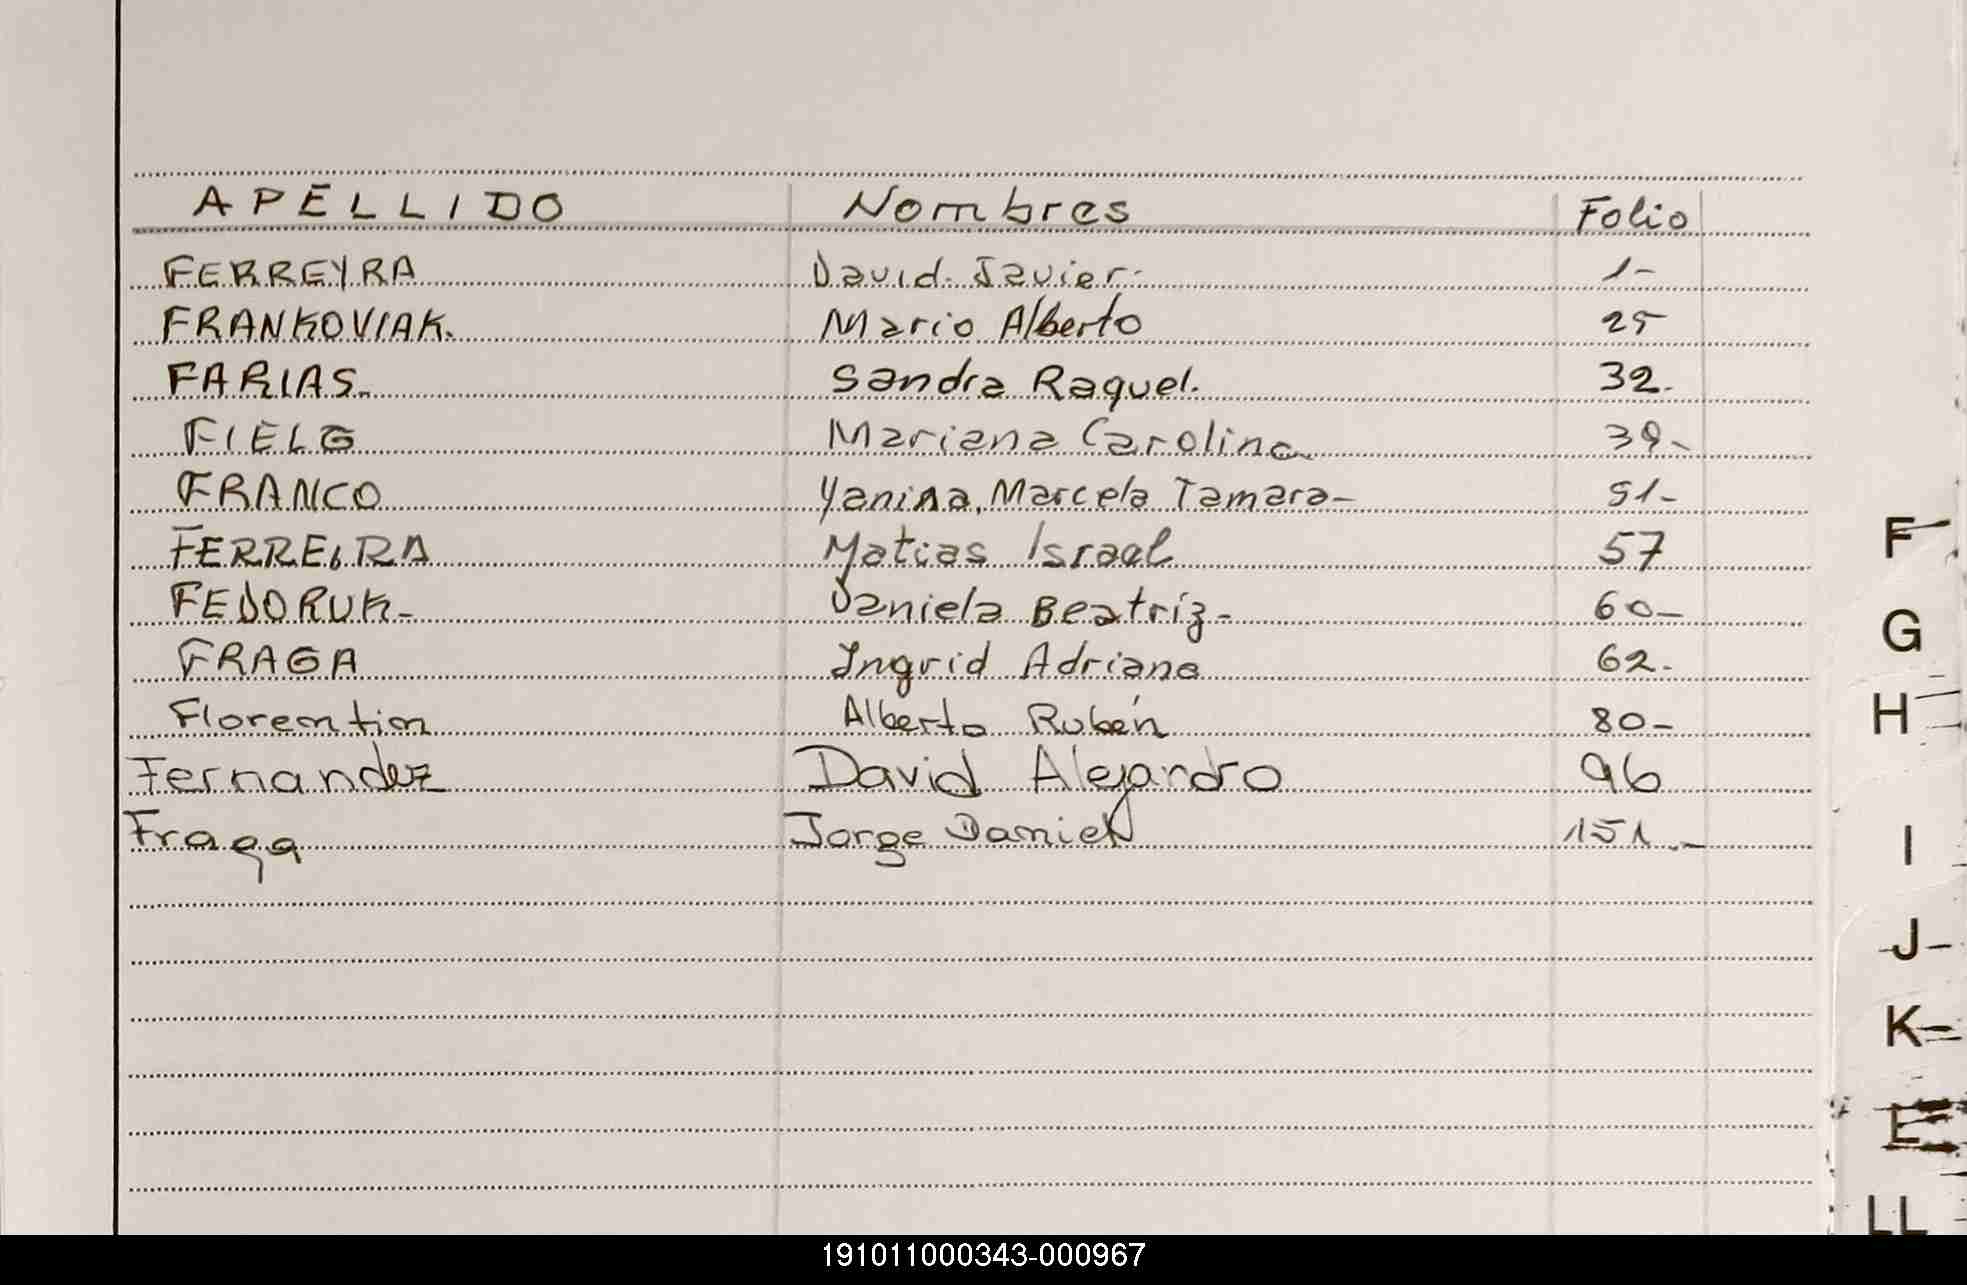 APELLIDO Nombres Folio
FERREYRA David Javier. 1-
FRANKOVIAK. Mario Alberto 25
FARIAS. Sandra Raquel. 32.
FIELG Mariana Carolina 39-
FRANCO Yanina, Marcela Tamara- 51-
FERREIRA Matias Israel 57
FEDORUK- Daniela Beatríz- 60-
FRAGA Ingrid Adriana 62.
Florentin Alberto Rubén 80-
Fernandez David Alejandro 96
Fraga Jorge Daniel 151.-
F
G
H
I
J
K
L
LL
191011000343-000967